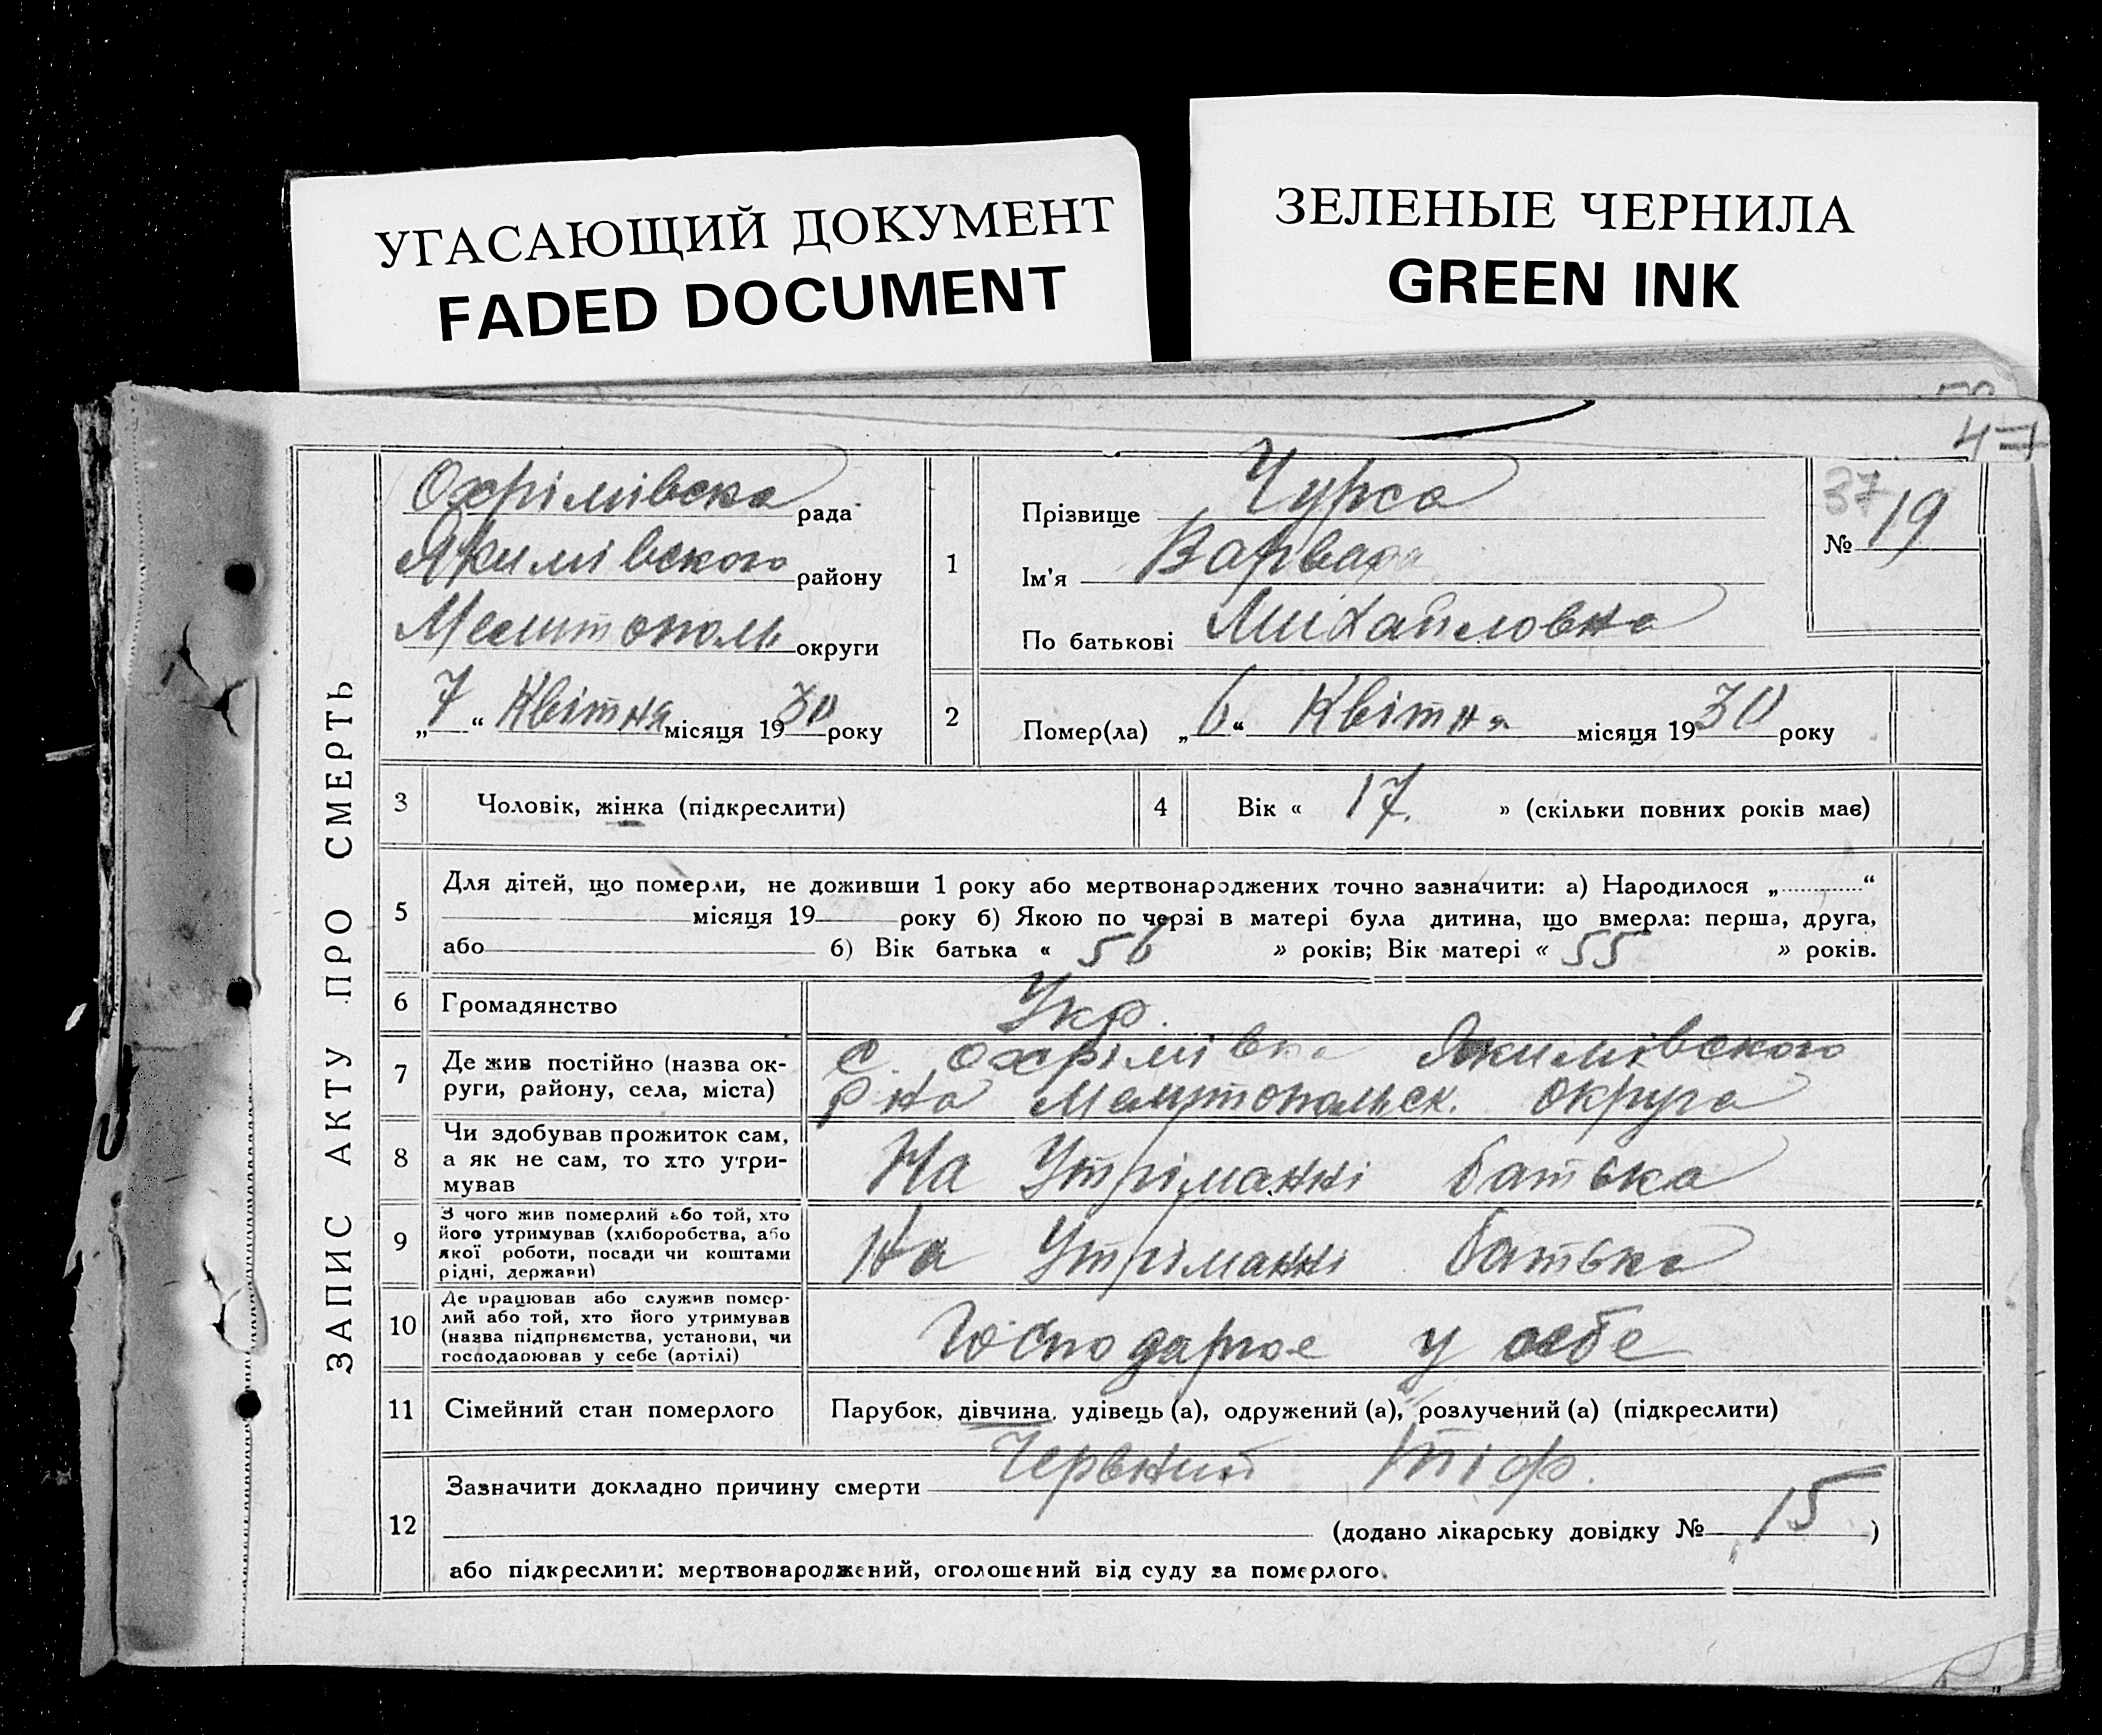 УГАСАЮЩИЙ ДОКУМЕНТ
FADED DOCUMENT
ЗЕЛЕНЫЕ ЧЕРНИЛА
GREEN INK
47
ЗАПИС АКТУ ПРО СМЕРТЬ
Охрімівска рада
Якимівского району
Мелитополь округи
„7“ Квітня місяця 1930 року
1
Прізвище Чурса
Ім'я Варвара
По батькові Михайловна
37
№ 19
2
Помер(ла) „6“ Квітня місяця 1930 року
3
Чоловік, жінка (підкреслити)
4
Вік « 17. » (скільки повних років має)
5
Для дітей, що померли, не доживши 1 року або мертвонароджених точно зазначити: а) Народилося „ “
місяця 19 року б) Якою по черзі в матері була дитина, що вмерла: перша, друга,
або б) Вік батька « 56 » років; Вік матері « 55 » років.
6
Громадянство
Укр.
7
Де жив постійно (назва ок-
руги, району, села, міста)
с. Охрімівка Якимівского
р-на Мелитопольск. округа
8
Чи здобував прожиток сам,
а як не сам, то хто утри-
мував
На Утріманні батька
9
З чого жив померлий або той, хто
його утримував (хліборобства, або
якої роботи, посади чи коштами
рідні, держави)
На Утріманні батька
10
Де працював або служив помер-
лий або той, хто його утримував
(назва підприємства, установи, чи
господарював у себе (артілі)
Господарює у себе
11
Сімейний стан померлого
Парубок, дівчина, удівець (а), одружений (а), розлучений (а) (підкреслити)
12
Зазначити докладно причину смерти Червний тіф.
(додано лікарську довідку № 15 )
або підкреслити: мертвонароджений, оголошений від суду за померлого.